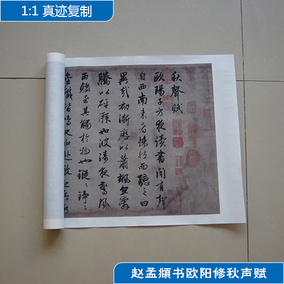 1:1 真迹复制
秋聲賦
歐陽子方夜讀書聞有聲
自西南来者悚然而聽之曰
異哉初淅瀝以蕭颯忽奔
騰以砰湃如波濤夜驚風
雨驟至其觸於物也鏦〻錚〻
赵孟頫书欧阳修秋声赋